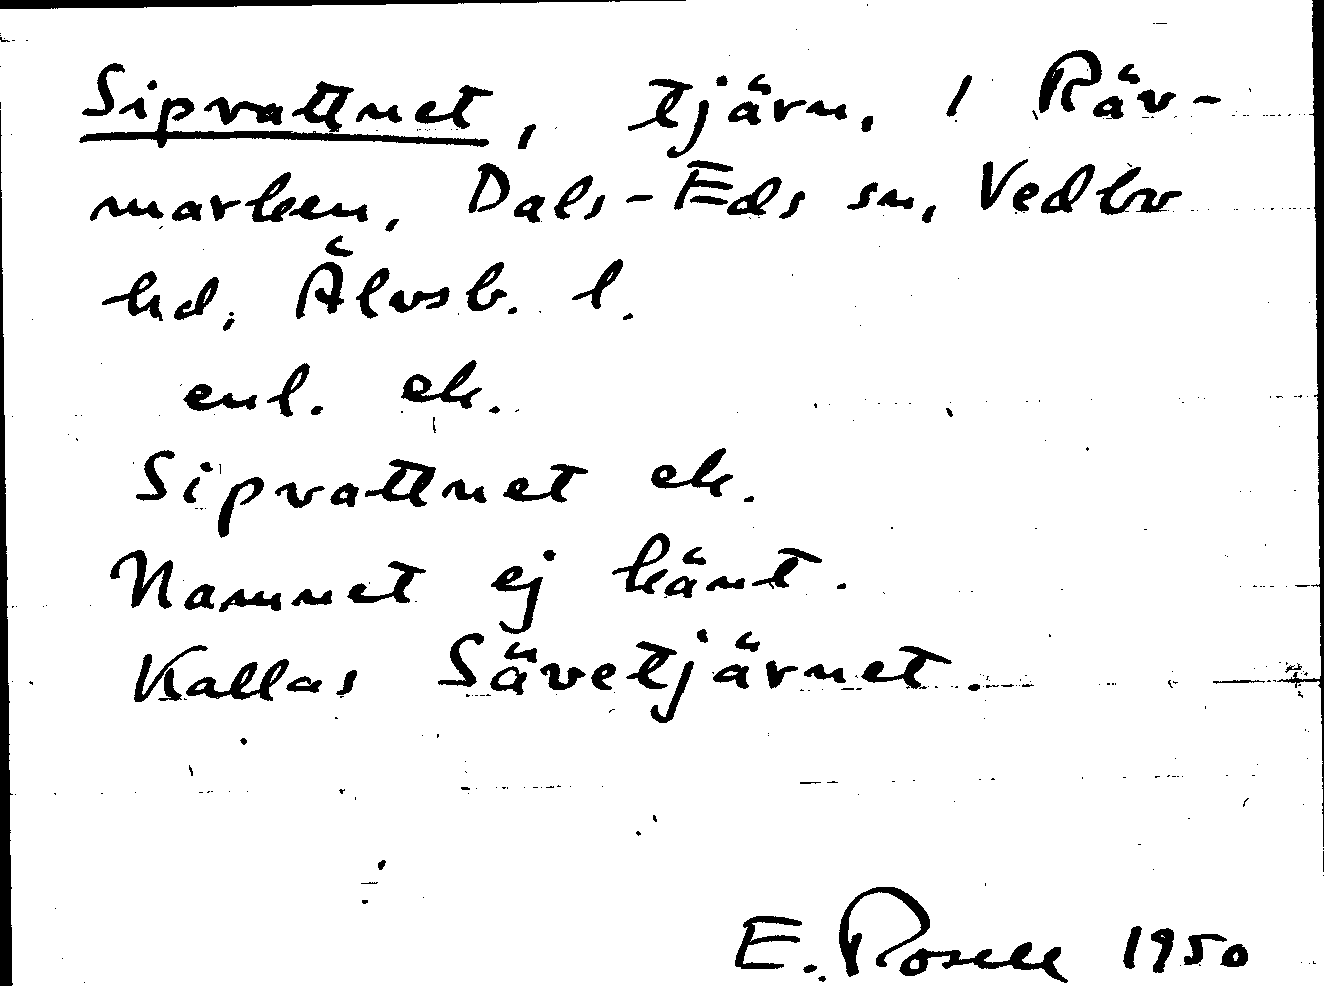 Sipvattnet, tjärn, 1 Räv-
marken, Dals-Eds sn, Vedbo
hd, Älvsb. l.
enl. ek.
Sipvattnet ek.
Namnet ej känt.
Kallas Sävetjärnet.
E. Rosell 1950